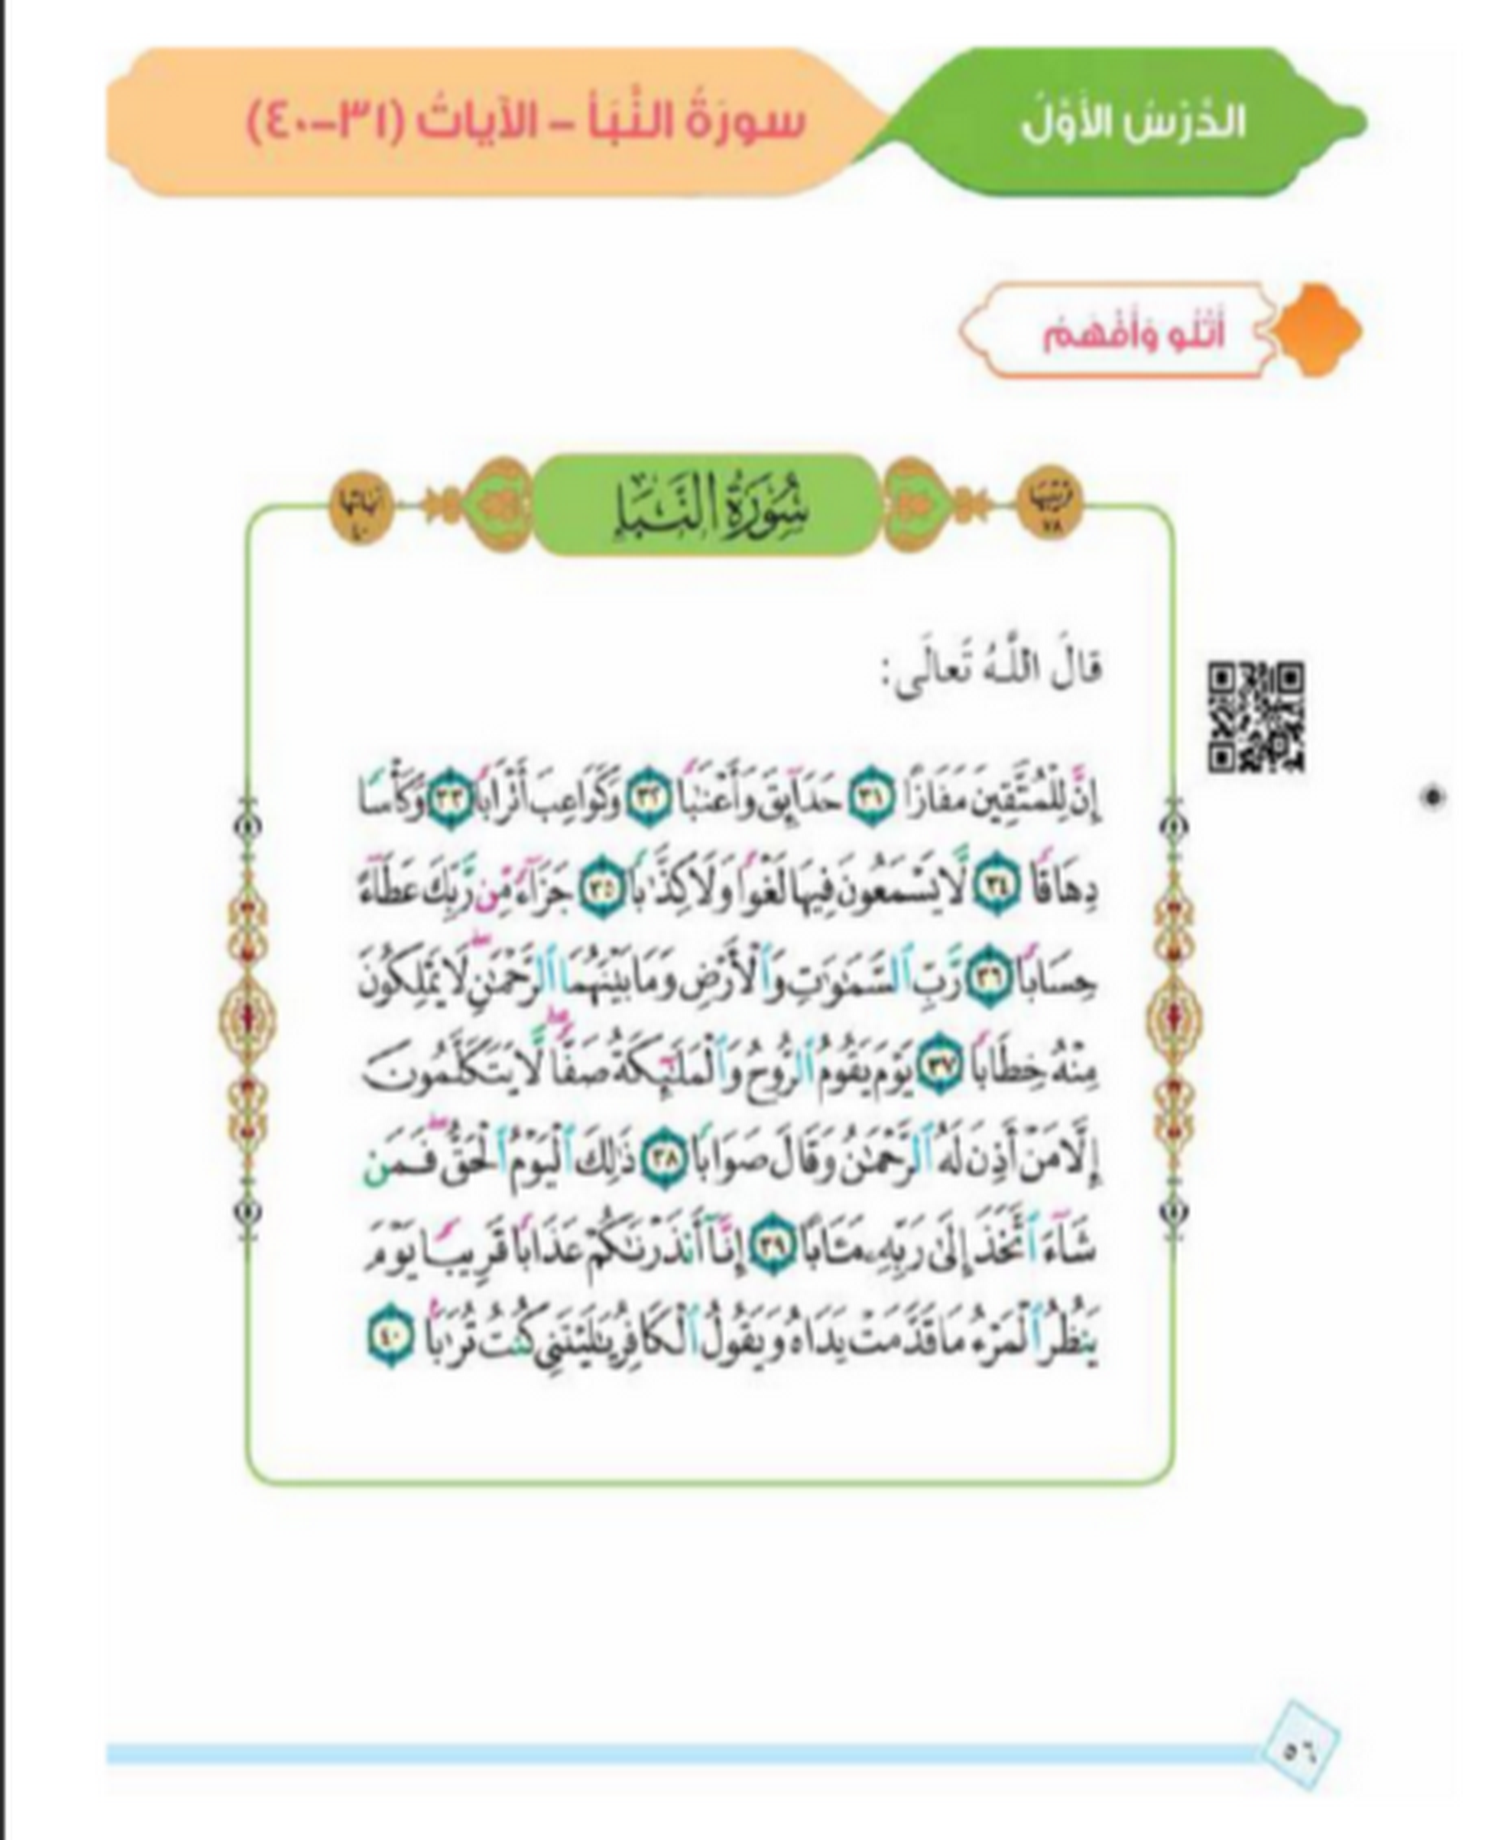 الدَّرْسُ الأَوَّلُ
سورَةُ النَّبَأ - الآياتُ (٣١-٤٠)
أَتْلُو وَأَفْهَمُ
تَرْتِيبُهَا
٧٨
سُورَةُ النَّبَإِ
آيَاتُهَا
٤٠
قالَ اللَّهُ تَعالَى:
إِنَّ لِلْمُتَّقِينَ مَفَازًا ٣١ حَدَآئِقَ وَأَعْنَٰبًا ٣٢ وَكَوَاعِبَ أَتْرَابًا ٣٣ وَكَأْسًا
دِهَاقًا ٣٤ لَّا يَسْمَعُونَ فِيهَا لَغْوًا وَلَا كِذَّٰبًا ٣٥ جَزَآءً مِّن رَّبِّكَ عَطَآءً
حِسَابًا ٣٦ رَّبِّ ٱلسَّمَٰوَٰتِ وَٱلْأَرْضِ وَمَا بَيْنَهُمَا ٱلرَّحْمَٰنِۖ لَا يَمْلِكُونَ
مِنْهُ خِطَابًا ٣٧ يَوْمَ يَقُومُ ٱلرُّوحُ وَٱلْمَلَٰٓئِكَةُ صَفًّاۖ لَّا يَتَكَلَّمُونَ
إِلَّا مَنْ أَذِنَ لَهُ ٱلرَّحْمَٰنُ وَقَالَ صَوَابًا ٣٨ ذَٰلِكَ ٱلْيَوْمُ ٱلْحَقُّۖ فَمَن
شَآءَ ٱتَّخَذَ إِلَىٰ رَبِّهِۦ مَـَٔابًا ٣٩ إِنَّآ أَنذَرْنَٰكُمْ عَذَابًا قَرِيبًا يَوْمَ
يَنظُرُ ٱلْمَرْءُ مَا قَدَّمَتْ يَدَاهُ وَيَقُولُ ٱلْكَافِرُ يَٰلَيْتَنِى كُنتُ تُرَٰبًا ٤٠